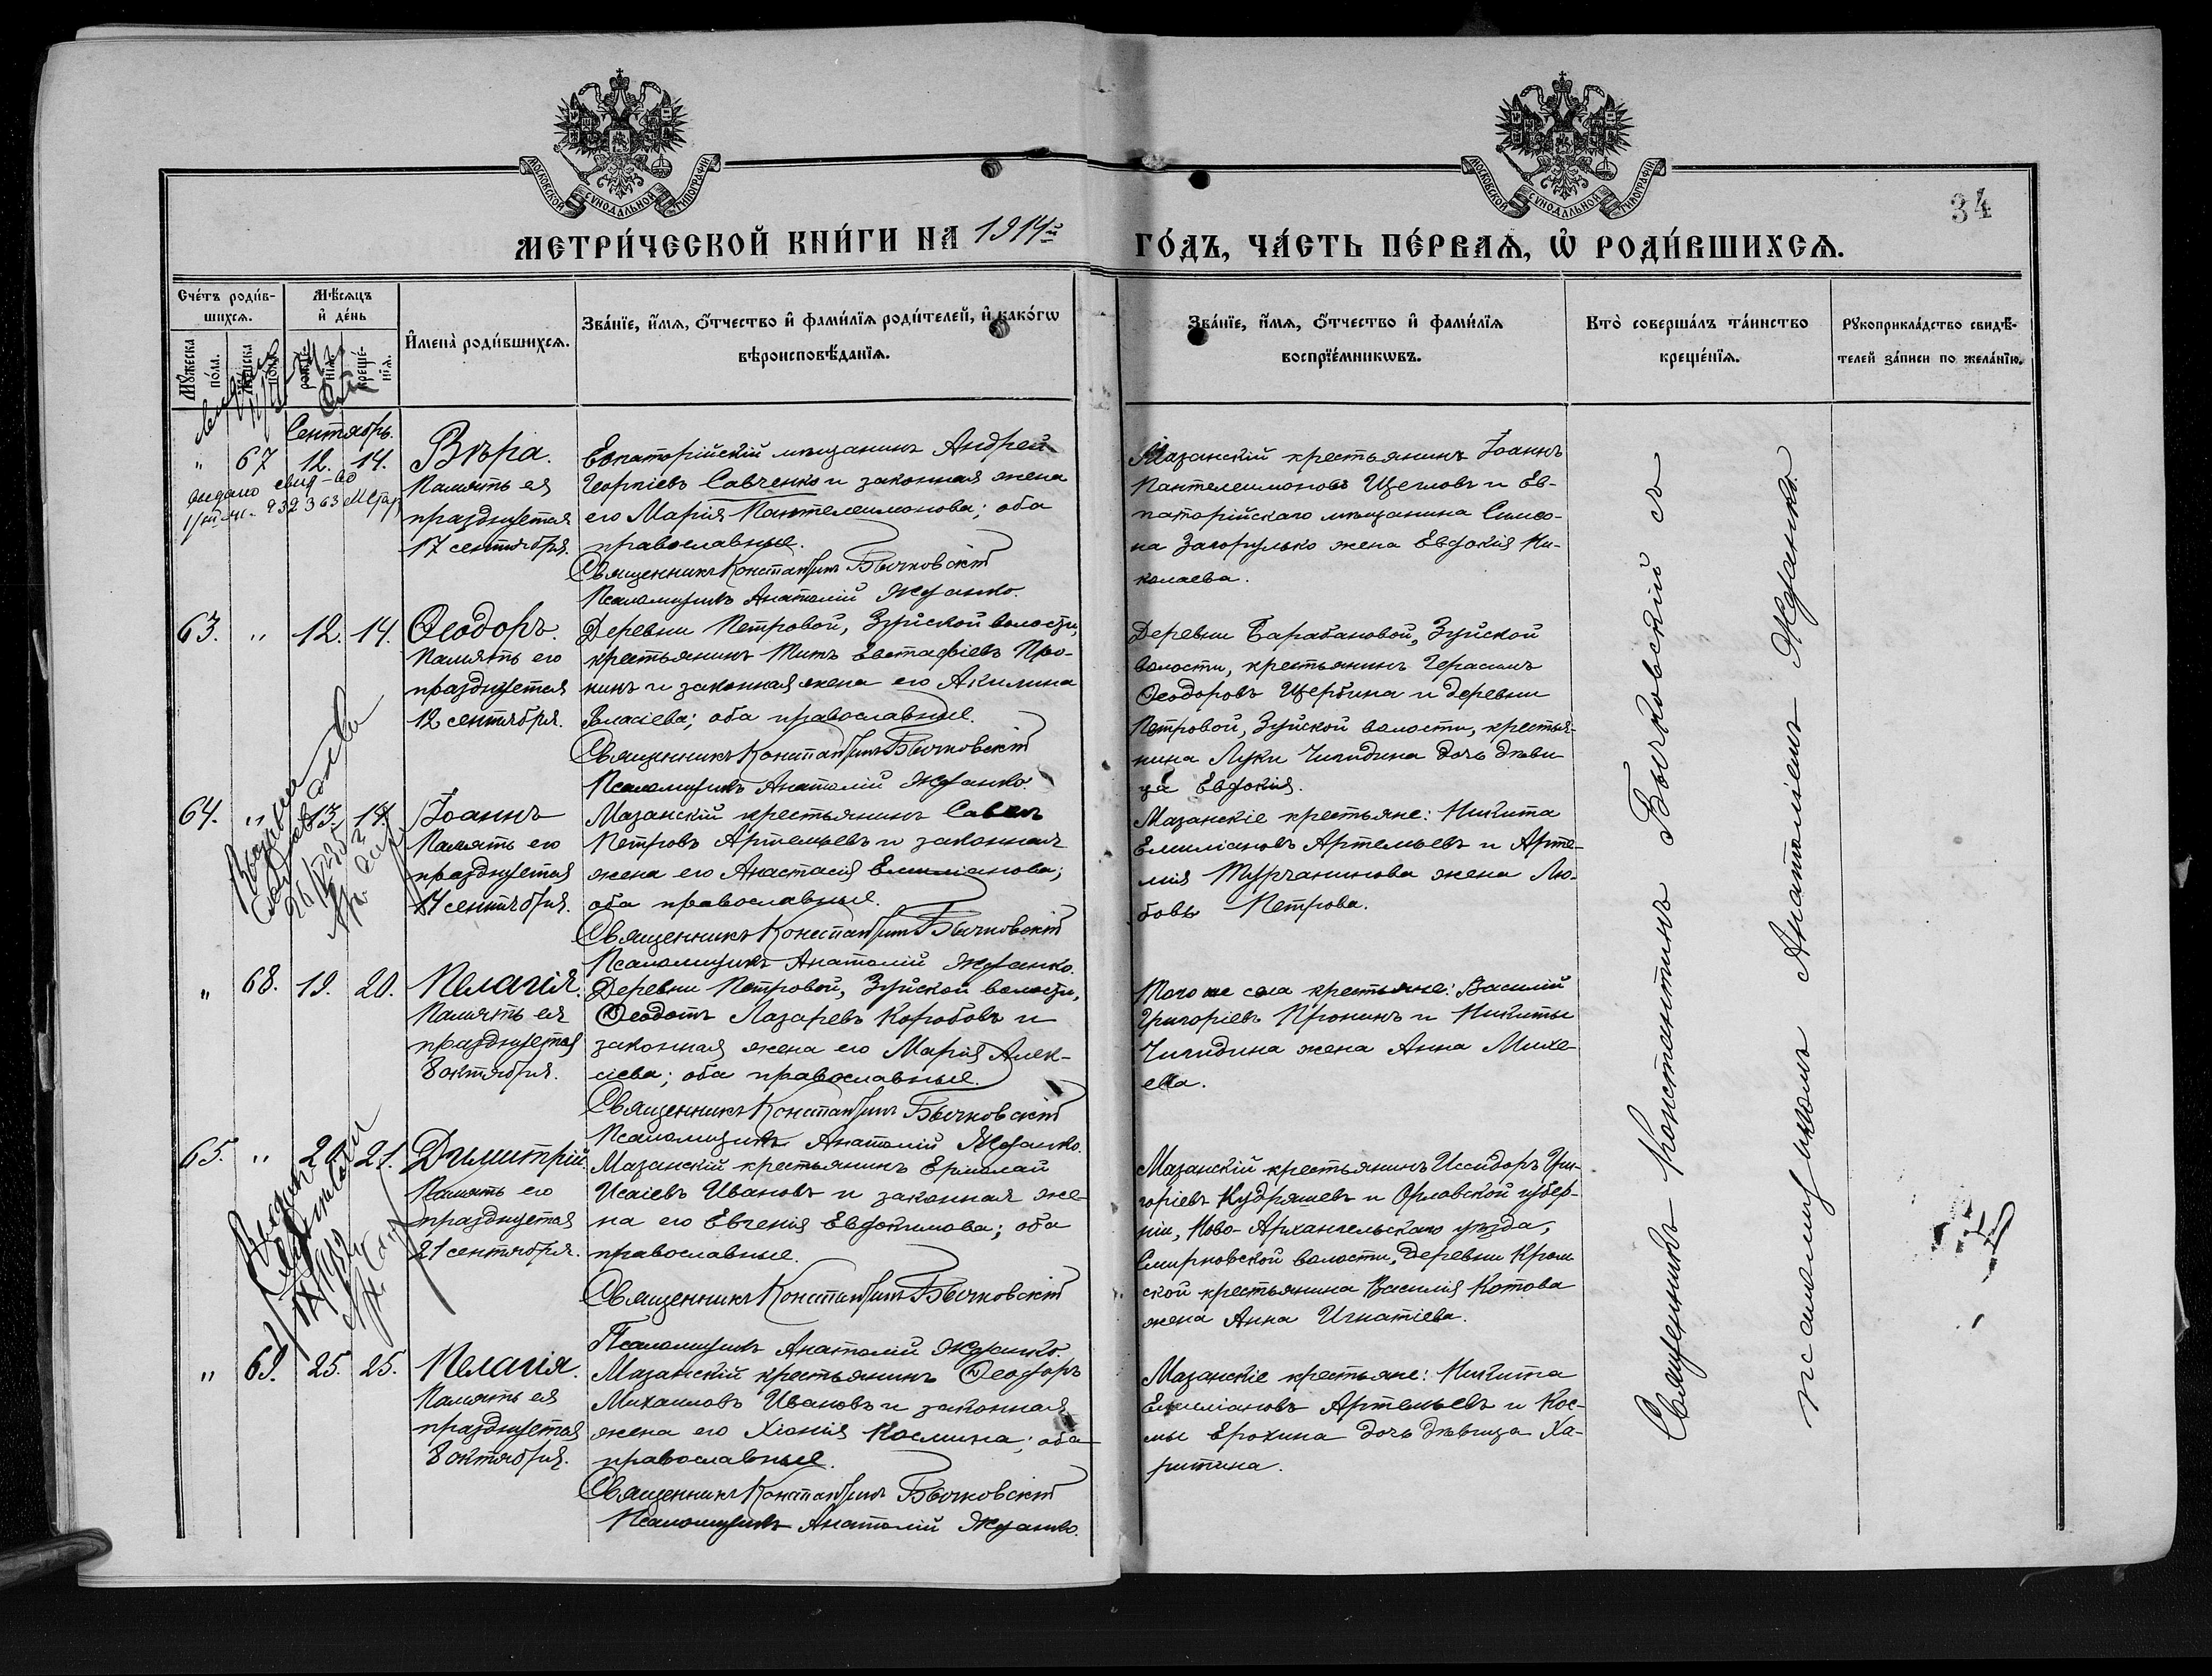 МОСКОВСКОЙ СѴНОДАЛЬНОЙ ТИПОГРАФІИ
МОСКОВСКОЙ СѴНОДАЛЬНОЙ ТИПОГРАФІИ
34
МЕТРИ́ЧЕСКОЙ КНИ́ГИ НА 1914й
ГО́ДЪ, ЧА́СТЬ ПЕ́РВАѦ, Ѡ҆ РОДИ́ВШИХСѦ.
Сче́тъ роди́в-
шихсѧ.
Мѣ́сѧцъ
и҆ де́нь
И҆мена̀ роди́вшихсѧ.
Зва́нїе, и҆́мѧ, ѻ҆́тчество и҆ фами́лїѧ роди́телей, и҆ како́гѡ
вѣроисповѣ́данїѧ.
Зва́нїе, и҆́мѧ, ѻ҆́тчество и҆ фами́лїѧ
воспрїе́мникѡвъ.
Кто̀ соверша́лъ та́инство
креще́нїѧ.
Рꙋкоприкла́дство свидѣ́-
телей за́писи по жела́нїю.
Мꙋ́жеска
по́ла.
Же́нска
по́ла.
рожде́-
нїѧ.
креще́-
нїѧ.
Сентябрь.
" 67 12. 14.
Выдано свид-во
Вѣра.
Память ея
празднуется
17 сентября.
Евпаторійскій мѣщанинъ Андрей
Георгіевъ Савченко и законная жена
его Марія Пантелеимонова; оба
православные.
Священникъ Константинъ Бычковскій
Псаломщикъ Анатолій Жданко.
Мазанскій крестьянинъ Іоаннъ
Пантелеимоновъ Щегловъ и Ев-
паторійскаго мѣщанина Симео-
на Загорулько жена Евдокія Ни-
колаева.
63. " 12. 14.
Ѳеодоръ.
Память его
празднуется
12 сентября.
Деревни Петровой, Зуйской волости,
крестьянинъ Титъ Евстафіевъ Про-
нинъ и законная жена его Акилина
Власіева; оба православные.
Священникъ Константинъ Бычковскій
Псаломщикъ Анатолій Жданко.
Деревни Барабановой, Зуйской
волости, крестьянинъ Герасимъ
Ѳеодоровъ Щербина и деревни
Петровой, Зуйской волости, крестья-
нина Луки Чигидина дочь дѣви-
ца Евдокія.
64. " 13. 14.
Іоаннъ
Память его
празднуется
14 сентября.
Мазанскій крестьянинъ Савелъ
Петровъ Артемьевъ и законная
жена его Анастасія Емиліанова;
оба православные.
Священникъ Константинъ Бычковскій
Псаломщикъ Анатолій Жданко.
Мазанскіе крестьяне: Никита
Емиліановъ Артемьевъ и Арте-
мія Турчанинова жена Лю-
бовь Петрова.
" 68. 19. 20.
Пелагія.
Память ея
празднуется
8 октября.
Деревни Петровой, Зуйской волости,
Ѳеодотъ Лазаревъ Коробовъ и
законная жена его Марія Алек-
сіева; оба православные.
Священникъ Константинъ Бычковскій
Псаломщикъ Анатолій Жданко.
Того же села крестьяне: Василій
Григоріевъ Пронинъ и Никиты
Чигидина жена Анна Михе-
ева.
65. " 20. 21.
Димитрій
Память его
празднуется
21 сентября.
Мазанскій крестьянинъ Ермолай
Исаіевъ Ивановъ и законная же-
на его Евгенія Евдокимова; оба
православные.
Священникъ Константинъ Бычковскій
Псаломщикъ Анатолій Жданко.
Мазанскій крестьянинъ Исидоръ Гри-
горіевъ Кудряшевъ и Орловской губер-
ніи, Ново-Архангельскаго уѣзда,
Смирновской волости, деревни Кром-
ской крестьянина Василія Котова
жена Анна Игнатіева.
" 69. 25. 25.
Пелагія.
Память ея
празднуется
8 октября.
Мазанскій крестьянинъ Ѳеодоръ
Михаиловъ Ивановъ и законная
жена его Хіонія Космина; оба
православные.
Священникъ Константинъ Бычковскій
Псаломщикъ Анатолій Жданко.
Мазанскіе крестьяне: Никита
Емиліановъ Артемьевъ и Кос-
мы Ерохина дочь дѣвица Ха-
ритина.
Священникъ Константинъ Бычковскій съ
псаломщикомъ Анатоліемъ Жданко.